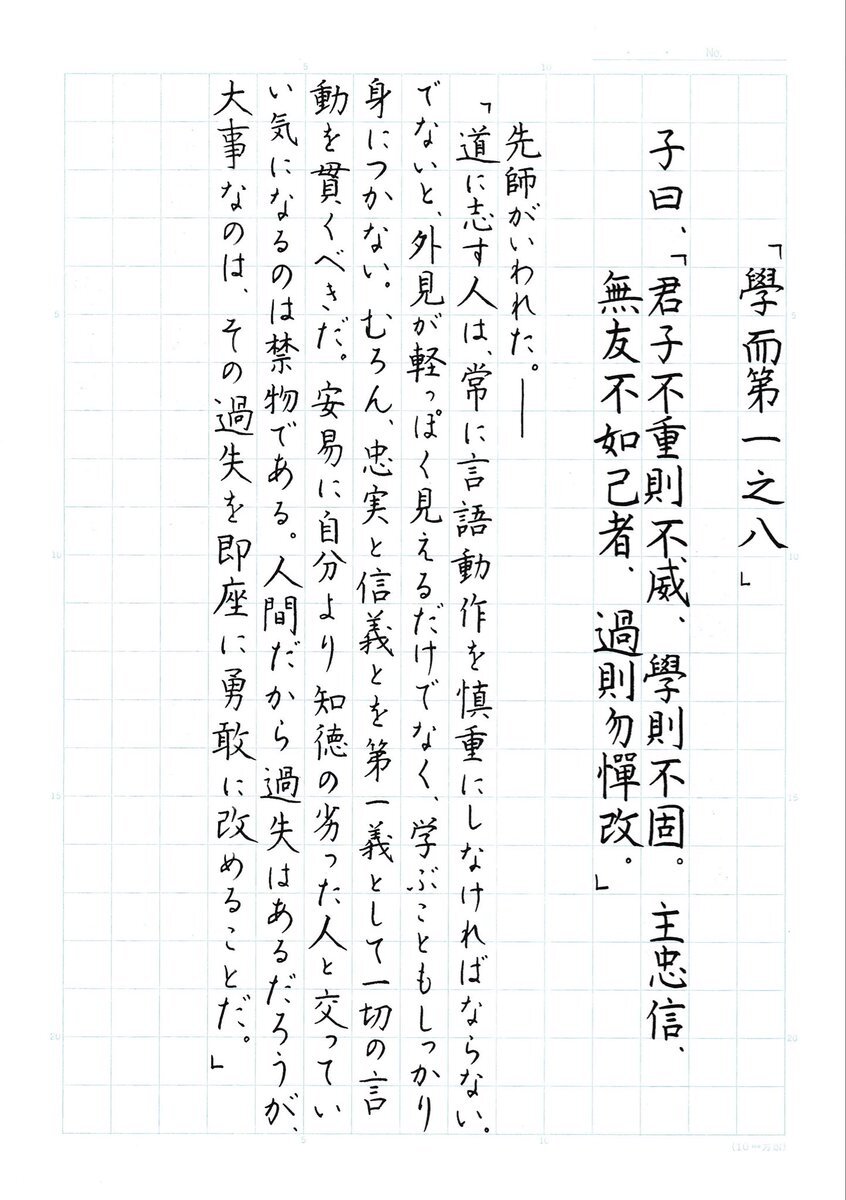 No.
「學而第一之八」
子曰、「君子不重則不威、學則不固。主忠信、
無友不如己者、過則勿憚改。」
先師がいわれた。――
「道に志す人は、常に言語動作を慎重にしなければならない。
でないと、外見が軽っぽく見えるだけでなく、学ぶこともしっかり
身につかない。むろん、忠実と信義とを第一義として一切の言
動を貫くべきだ。安易に自分より知徳の劣った人と交ってい
い気になるのは禁物である。人間だから過失はあるだろうが、
大事なのは、その過失を即座に勇敢に改めることだ。」